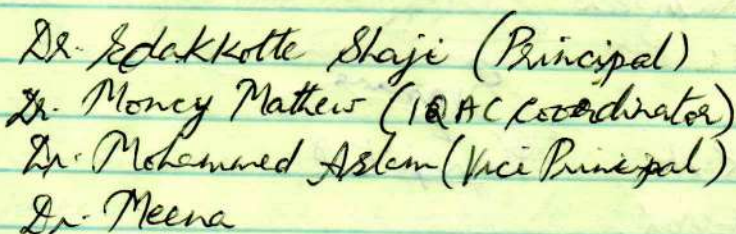 Dr. Edakkotte Shaji (Principal)
Dr. Moncy Mathew (IQAC Coordinator)
Dr. Mohammed Aslam (Vice Principal)
Dr. Meena